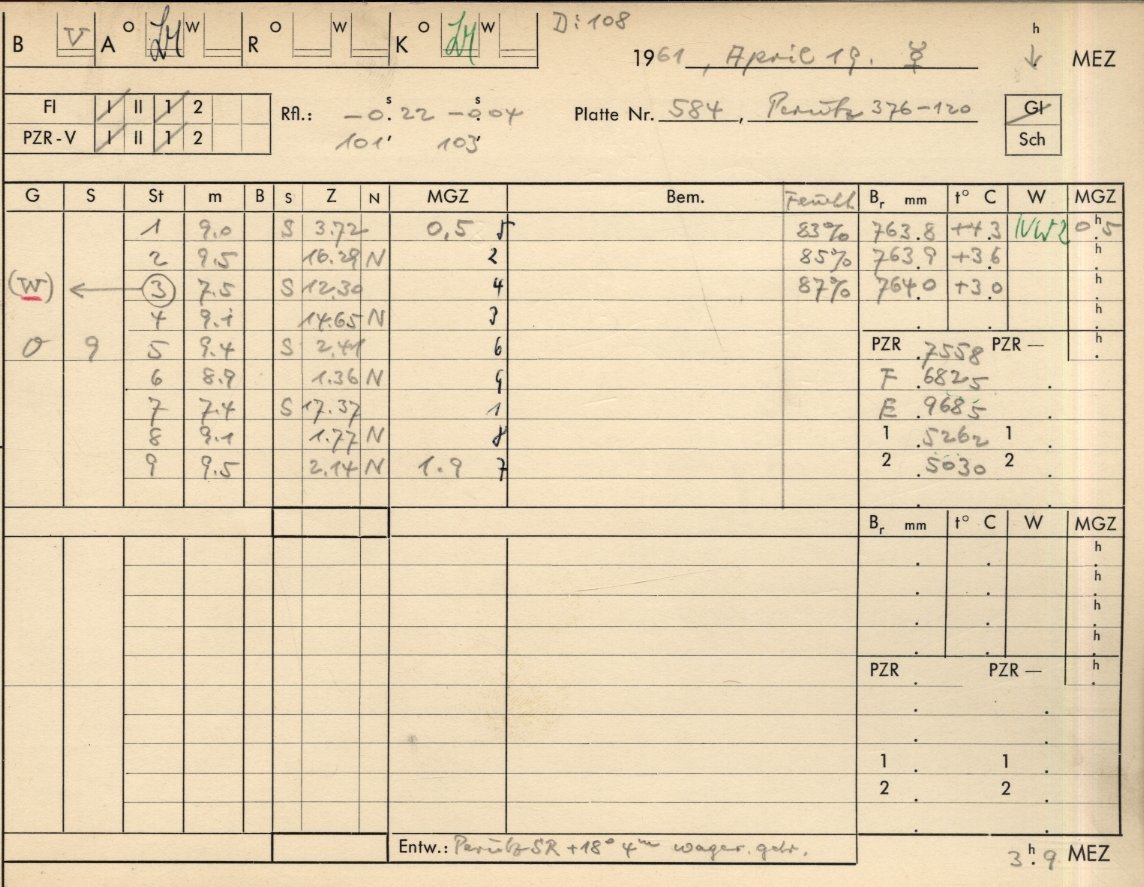 D: 108
B V A O W R O W K O W
1961, April 19. ☿ h MEZ
FI I II 1 2 Rfl.: −0ˢ.22 −0ˢ.04 Platte Nr. 584, Perutz 376-120 Gl
PZR-V I II 1 2 101' 103' Sch
G S St m B S Z N MGZ Bem. Feucht Bᵣ mm t° C W MGZ
1 9.0 S 3.72 0,5 5 83% 763.8 +4.3 NW2 0ʰ.5
2 9.5 16.29 N 2 85% 763.9 +3.6 h
(W) ← 3 7.5 S 12.30 4 87% 764.0 +3.0 h
4 9.1 14.65 N 3 h
0 9 5 9.4 S 2.41 6 PZR .7558 PZR — h
6 8.9 1.36 N 9 F .6825
7 7.4 S 17.37 1 E .9685
8 9.1 1.77 N 8 1 .5262 1
9 9.5 2.14 N 1.9 7 2 .5030 2
Bᵣ mm t° C W MGZ
h
h
h
h
PZR PZR — h
1 1
2 2
Entw.: Perutz SR +18° 4ᵐ
3ʰ.9 MEZ